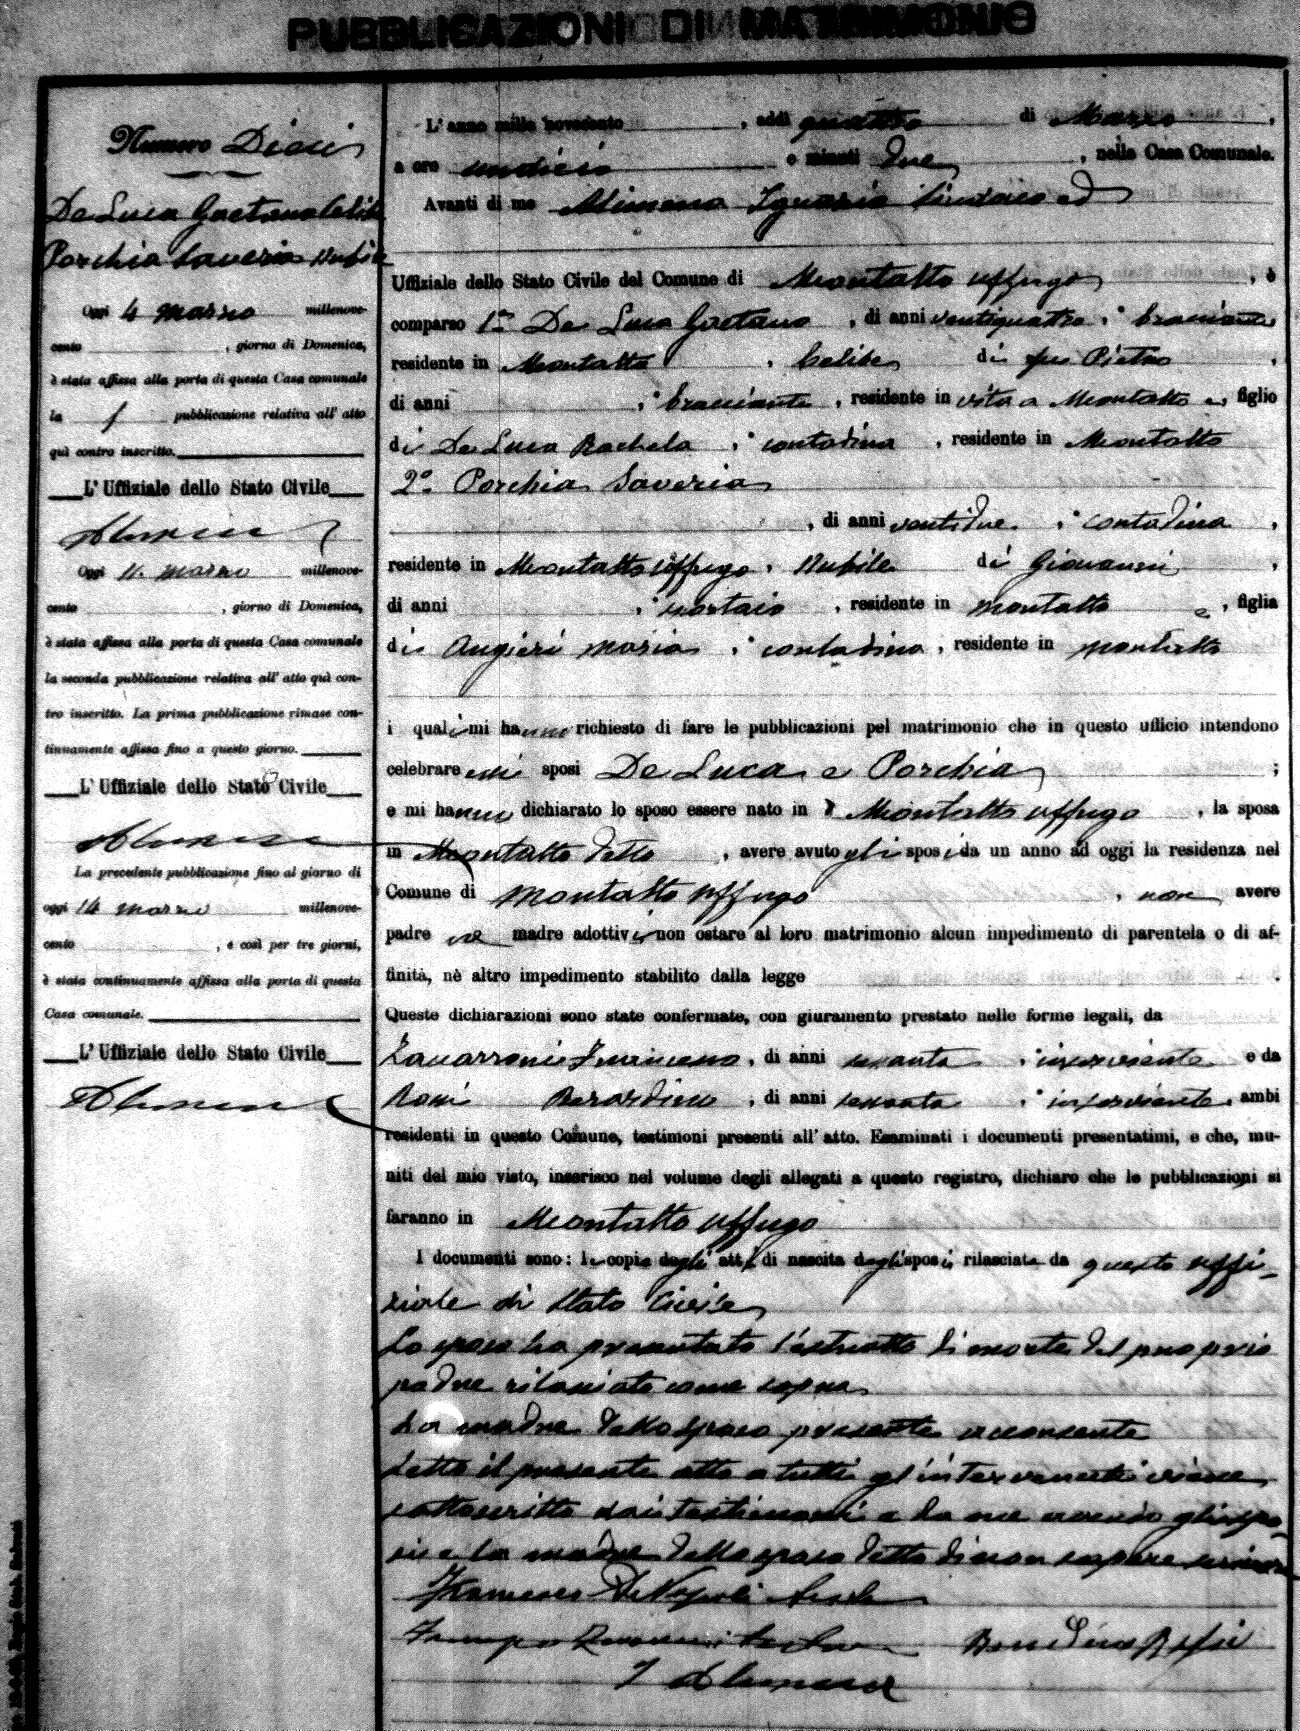 PUBBLICAZIONI DI MATRIMONIO
Numero Dieci
De Luca Gaetano Celibe
Porchia Saveria Nubile
Oggi 4 marzo millenove-
cento , giorno di Domenica,
è stata affissa alla porta di questa Casa comunale
la pubblicazione relativa all' atto
quì contro inscritto.
L' Uffiziale dello Stato Civile
Alimena
Oggi 11 marzo millenove-
cento , giorno di Domenica,
è stata affissa alla porta di questa Casa comunale
la seconda pubblicazione relativa all' atto quì con-
tro inscritto. La prima pubblicazione rimase con-
tinuamente affissa fino a questo giorno.
L' Uffiziale dello Stato Civile
Alimena
La precedente pubblicazione fino al giorno di
oggi 14 marzo millenove-
cento , e così per tre giorni,
è stata continuamente affissa alla porta di questa
Casa comunale.
L' Uffiziale dello Stato Civile
Alimena
L' anno mille novecento , addì quattro di Marzo ,
a ore undici e minuti due , nella Casa Comunale.
Avanti di me Alimena Ignazio Sindaco ed
Uffiziale dello Stato Civile del Comune di Montalto Uffugo , è
comparso 1° De Luca Gaetano , di anni ventiquattro , bracciante
residente in Montalto , celibe di fu Pietro ,
di anni , bracciante , residente in vita a Montalto e, figlio
di De Luca Rachela , contadina , residente in Montalto
2° Porchia Saveria
, di anni ventidue , contadina ,
residente in Montalto Uffugo , Nubile di Giovanni ,
di anni , , residente in Montalto e , figlia
di Angieri Maria , contadina , residente in Montalto
i quali mi hanno richiesto di fare le pubblicazioni pel matrimonio che in questo ufficio intendono
celebrare essi sposi De Luca e Porchia ;
e mi hanno dichiarato lo sposo essere nato in Montalto Uffugo , la sposa
in Montalto detto , avere avuto gli sposi da un anno ad oggi la residenza nel
Comune di Montalto Uffugo , non avere
padre nè madre adottivi, non ostare al loro matrimonio alcun impedimento di parentela o di af-
finità, nè altro impedimento stabilito dalla legge
Queste dichiarazioni sono state confermate, con giuramento prestato nelle forme legali, da
Zavarroni , di anni , inserviente e da
Rossi Berardino , di anni sessanta , inserviente , ambi
residenti in questo Comune, testimoni presenti all' atto. Esaminati i documenti presentatimi, e che, mu-
niti del mio visto, inserisco nel volume degli allegati a questo registro, dichiaro che le pubblicazioni si
faranno in Montalto Uffugo
I documenti sono: le copie degli atti di nascita degli sposi, rilasciate da questo uffi-
ziale di Stato Civile
Lo sposo ha presentato l'estratto di morte del proprio
padre rilasciato come sopra
La madre dello sposo presente acconsente
Letto il presente atto a tutti gl'intervenuti viene
sottoscritto dai testimoni e da me avendo gli spo-
si e la madre dello sposo detto di non sapere scrivere
De Napoli
I Alimena